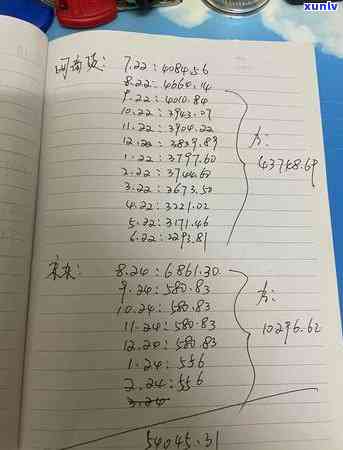 网商贷: 7.22: 4084.56
8.22: 4064.14
9.22: 4010.84
10.22: 3943.07
11.22: 3904.22
12.22: 3839.89
1.22: 3797.60
2.22: 3744.60
3.22: 3673.50
4.22: 3221.02
5.22: 3171.46
6.22: 2293.81
为:
43748.69
京东: 8.24: 6861.30
9.24: 580.83
10.24: 580.83
11.24: 580.83
12.24: 580.83
1.24: 556
2.24: 556
3.24
为:
10296.62
54045.31
xuniv